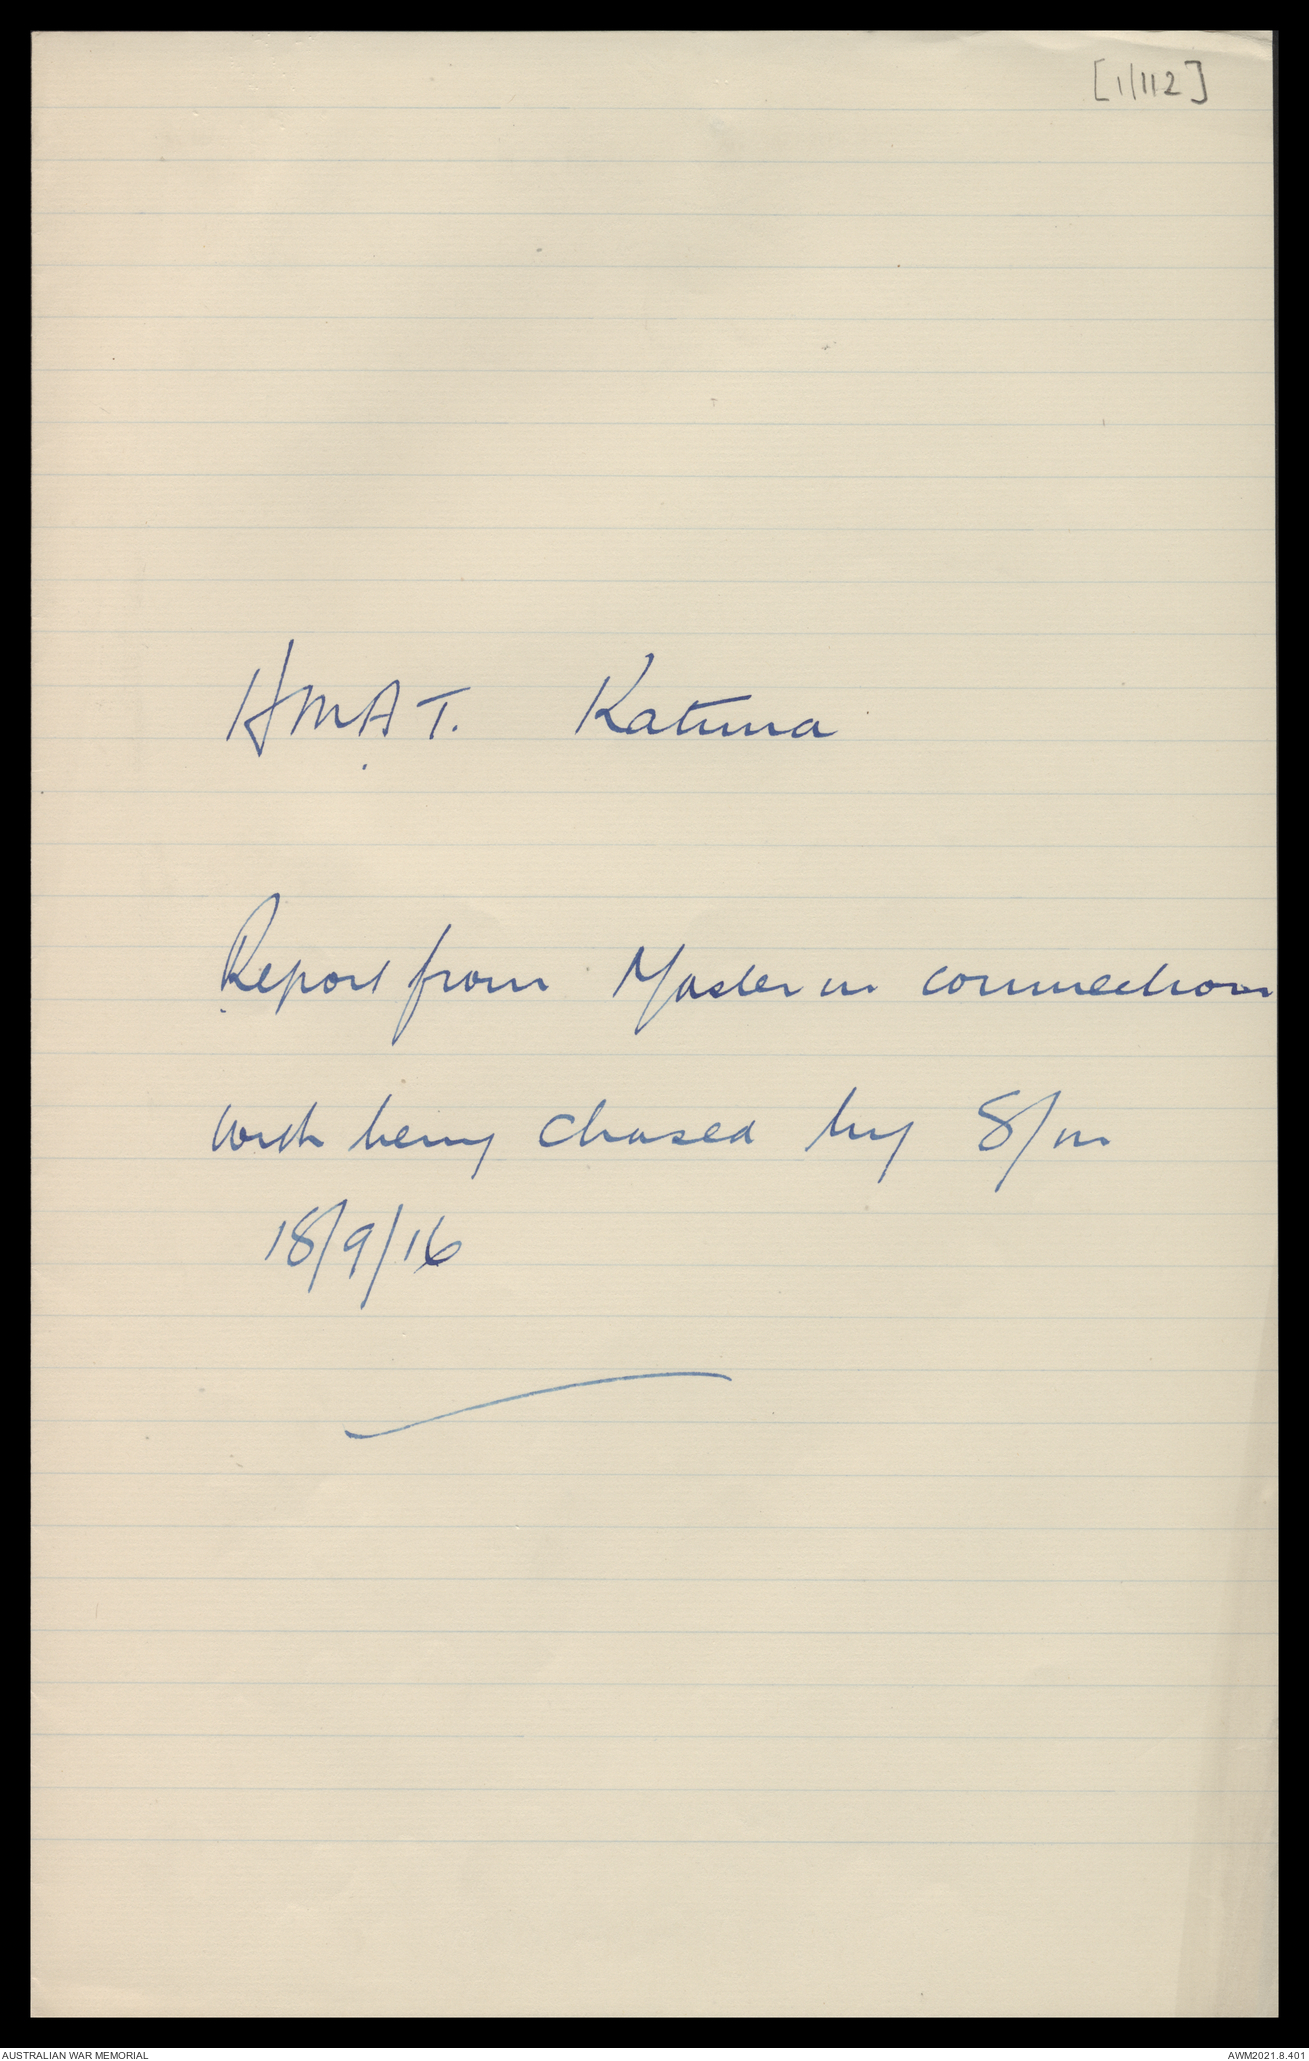 [1/112]
HMAT. Katuna
Report from Master in connection
with being chased by S/m
18/9/16
AUSTRALIAN WAR MEMORIAL
AWM2021.8.401